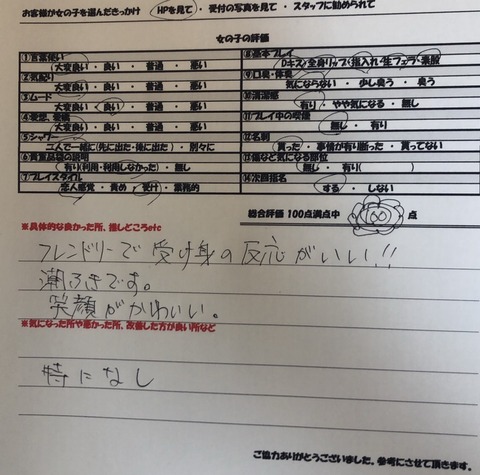 お客様が女の子を選んだきっかけ HPを見て ・ 受付の写真を見て ・ スタッフに勧められて
女の子の評価
①言葉使い
大変良い ・ 良い ・ 普通 ・ 悪い
②気配り
大変良い ・ 良い ・ 普通 ・ 悪い
③ムード
大変良い ・ 良い ・ 普通 ・ 悪い
大変良い ・ 良い ・ 普通 ・ 悪い
⑤シャワー
二人で一緒に(先に出た・後に出た) ・ 別々に
⑥貴重品袋の説明
有り(利用・利用しなかった) ・ 無し
⑦プレイスタイル
恋人感覚 ・ 責め ・ 受け ・ 業務的
⑧基本プレイ
Dキス 全身リップ 指入れ・生フェラ・素股
⑨口臭・体臭
気にならない ・ 少し臭う ・ 臭う
⑩清潔感
有り ・ やや気になる ・ 無し
⑪プレイ中の喫煙
無し ・ 有り
⑫名刺
貰った ・ 事情が有り断った ・ 貰ってない
⑬傷など気になる部位
無し ・ 有り( )
⑭次回指名
する ・ しない
総合評価 100点満点中 100 点
※具体的な良かった所、推しどころetc
フレンドリーで受け身の反応がいい!!
潮ふきです。
笑顔がかわいい。
※気になった所や悪かった所、改善した方が良い所など
特になし
ご協力ありがとうございました。参考にさせて頂きます。